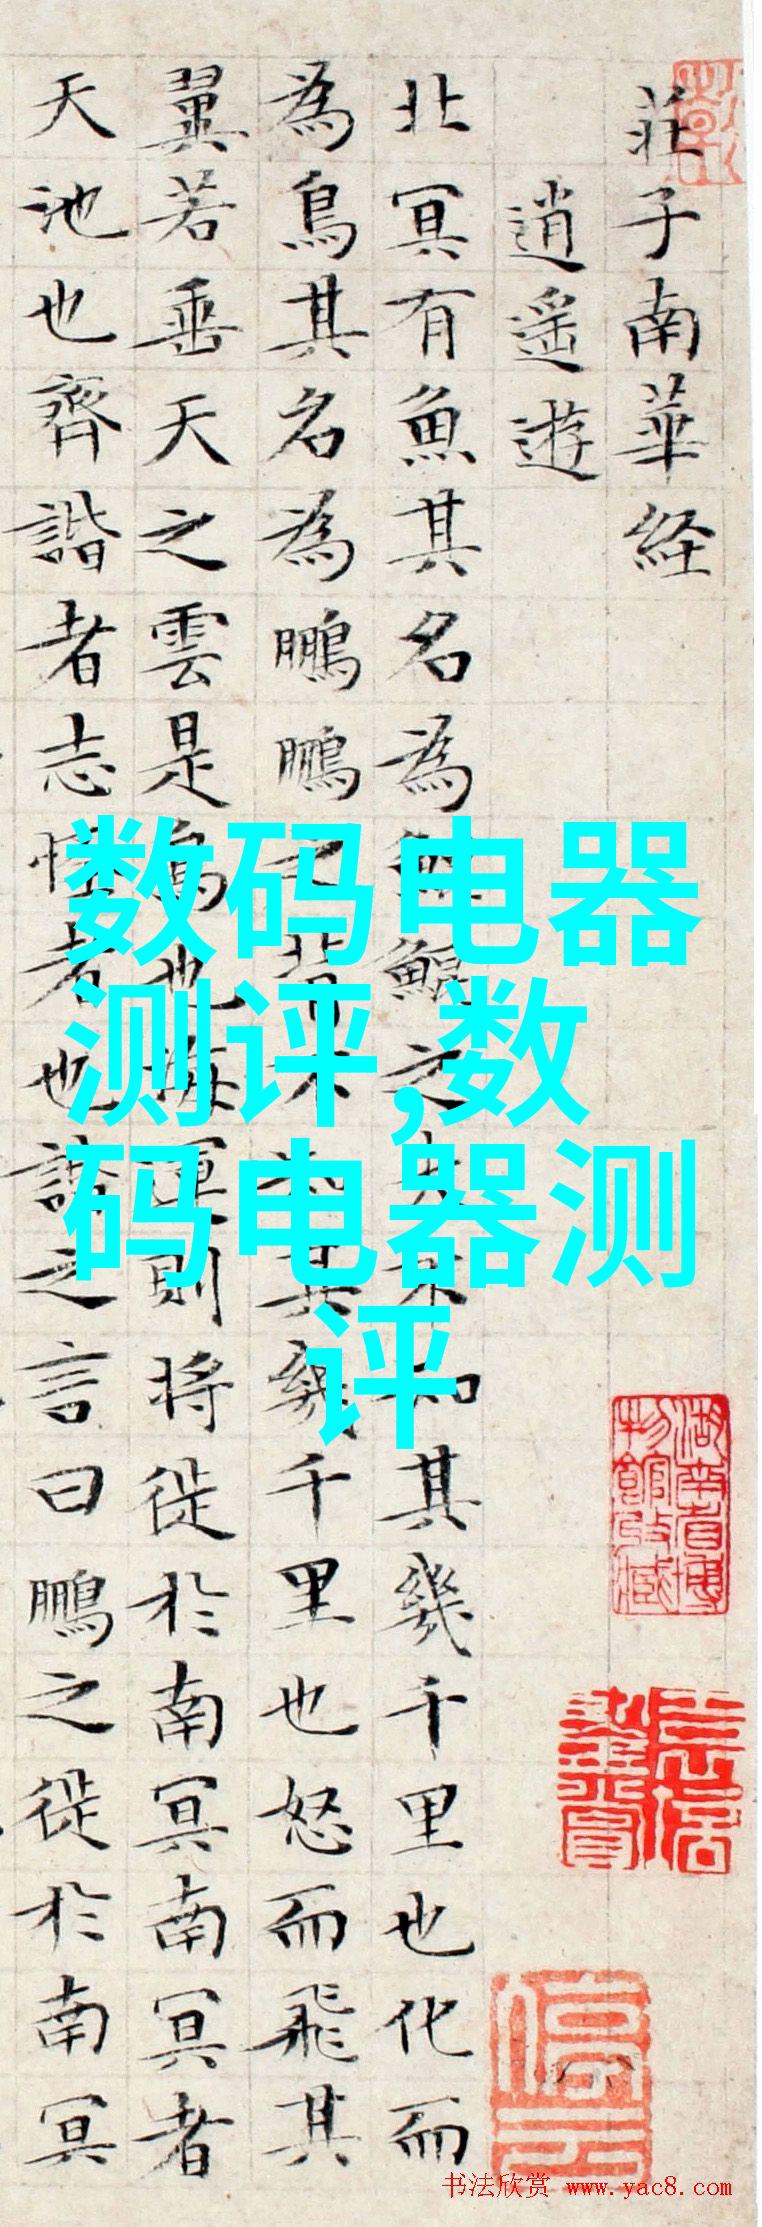 莊子南華経
逍遥遊
北冥有魚其名為鯤鯤之大不知其幾千里也化而
為鳥其名為鵬鵬之背不知其幾千里也怒而飛其
翼若垂天之雲是鳥也海運則将徙於南冥南冥者
天池也齊諧者志怪者也諧之言曰鵬之徙於南冥
数码电器
测评,数
码电器测
评
湖南省博
物館收藏
书法欣赏 www.yac8.com